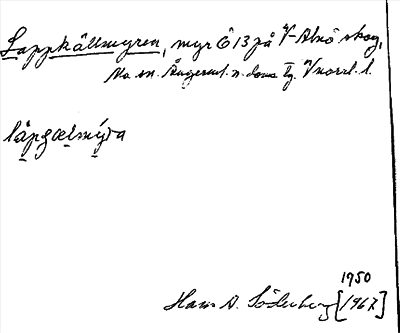 Lappkällmyren, myr Ö 13 på V-Alnö skog,
sn. Ångerml. n. doms. tg. Vnorrl. l.
lapgælmýra
1950
Hans A. Söderberg [1967]